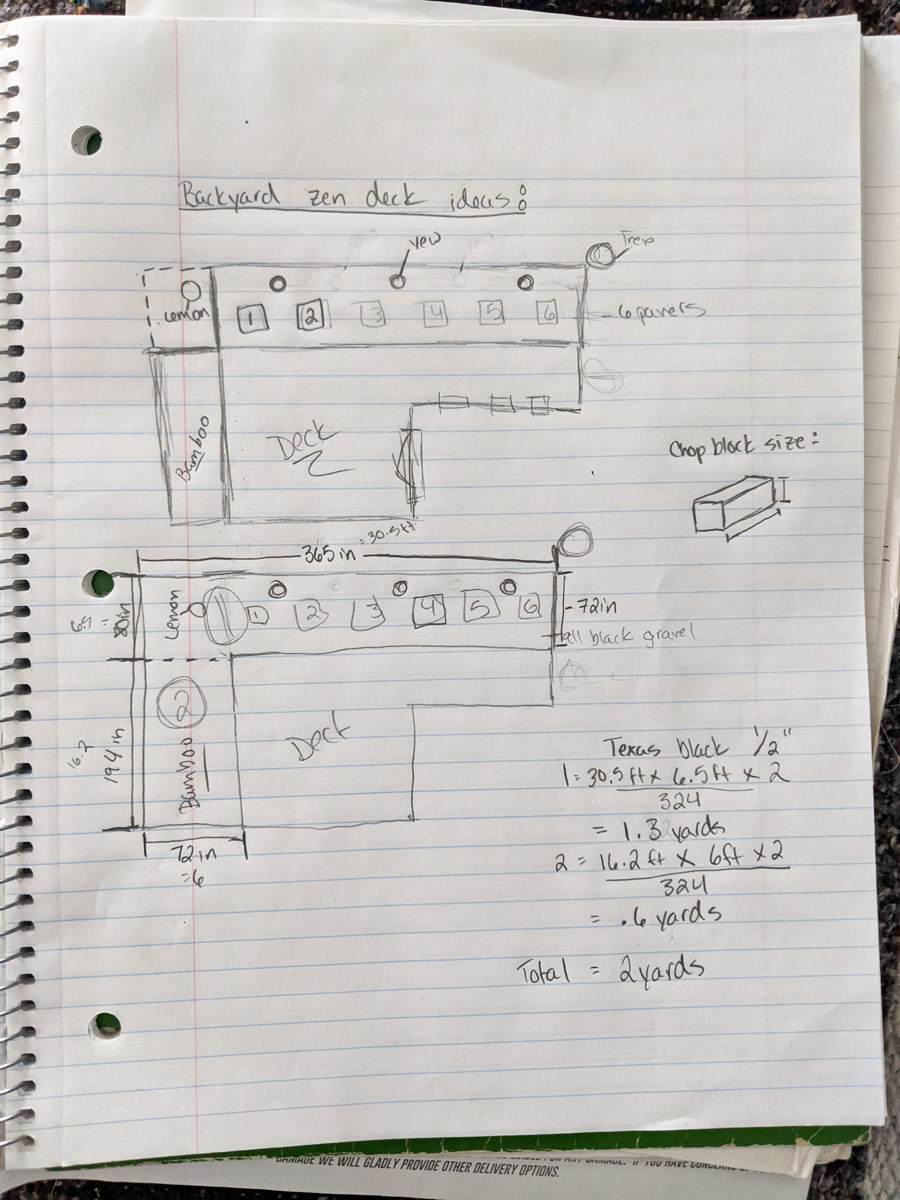 Backyard zen deck ideas:
yew
Tree
Lemon
1 2 3 4 5 6
6 pavers
Bamboo
Deck
Chop block size:
= 30.5 ft
365 in
Lemon
1 2 3 4 5 6
72in
80in
all black gravel
2
16.2
194 in
Bamboo
Deck
72 in
=6
Texas black 1/2"
1 = 30.5 ft x 6.5 ft x 2
324
= 1.3 yards
2 = 16.2 ft x 6ft x 2
324
= .6 yards
Total = 2 yards
DAMAGE WE WILL GLADLY PROVIDE OTHER DELIVERY OPTIONS.